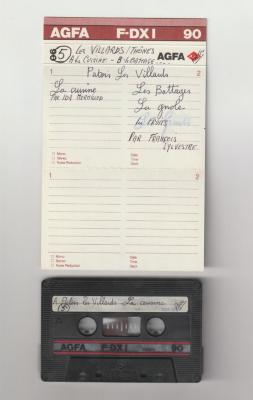 AGFA F-DX I 90
5 Les VILLARDS/THÔNES
A La CUISINE - B
AGFA
1 2
Patois Les Villards
La cuisine
Par IDA MERMILLOD
Les Battages
La gnole
Les FRUITS
PAR FRANÇOIS
SYLVESTRE
Mono
Stereo
Noise Reduction
Date
Time
Rec#
1 2
Mono
Stereo
Noise Reduction
Date
Time
A Patois les Villards La cuisine
AGFA F-DX I 90